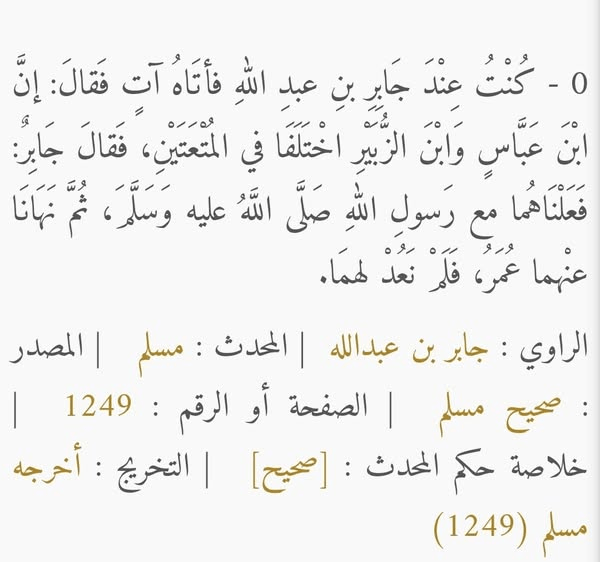 0 - كُنْتُ عِنْدَ جَابِرِ بنِ عبدِ اللهِ فأتَاهُ آتٍ فَقالَ: إنَّ
ابْنَ عَبَّاسٍ وَابْنَ الزُّبَيْرِ اخْتَلَفَا في المُتْعَتَيْنِ، فَقالَ جَابِرٌ:
فَعَلْنَاهُما مع رَسولِ اللهِ صَلَّى اللَّهُ عليه وَسَلَّمَ، ثُمَّ نَهَانَا
عنْهما عُمَرُ، فَلَمْ نَعُدْ لهمَا.
الراوي : جابر بن عبدالله | المحدث : مسلم | المصدر
: صحيح مسلم | الصفحة أو الرقم : 1249 |
خلاصة حكم المحدث : [صحيح] | التخريج : أخرجه
مسلم (1249)